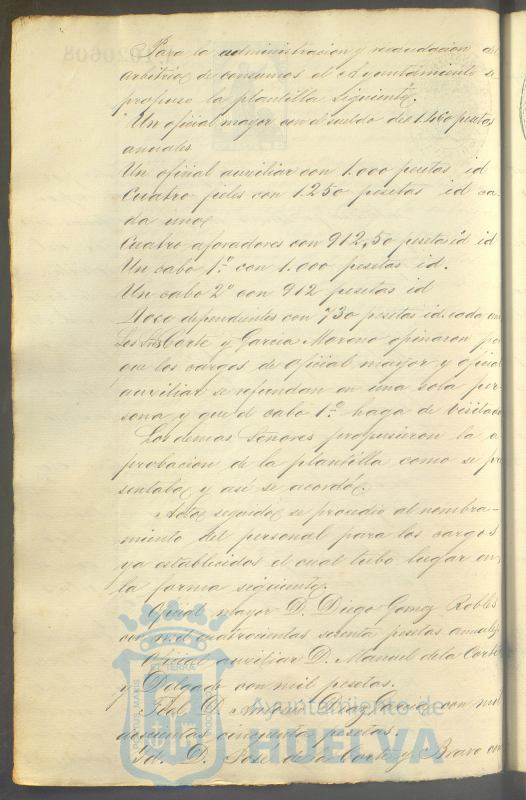 Para la administracion y recaudacion del
arbitrio de consumos el Ayuntamiento se
propuso la plantilla siguiente.
Un oficial mayor con el sueldo de 1.460 pesetas
anuales
Un oficial auxiliar con 1.000 pesetas id
Cuatro fieles con 1.250 pesetas id ca-
da uno
Cuatro aforadores con 912,50 pesetas id id
Un cabo 1º con 1.000 pesetas id.
Un cabo 2º con 912 pesetas id
dependientes con 730 pesetas id cada uno
Los Sres Corte y Garcia Moreno opinaron por
que los cargos de oficial mayor y oficial
auxiliar se refundan en una sola per-
sona y que el cabo 1º haga de visitador
Los demas Señores propusieron la a-
probacion de la plantilla como se pre
sentaba y así se acordó.
Acto seguido se procedio al nombra-
miento del personal para los cargos
ya establecidos el cual tubo lugar en
la forma siguiente.
Oficial mayor D. Diego Gomez Robles
con mil cuatrocientas sesenta pesetas anuales
Oficial auxiliar D. Manuel de la Corte
y Delgado con mil pesetas.
Fiel D. Antonio Diaz con mil
doscientas cincuenta pesetas.
Id. D. Jose de la Corte y Bravo con
PORTUS MARIS
ET TERRÆ
CUSTODIA
Ayuntamiento de
HUELVA